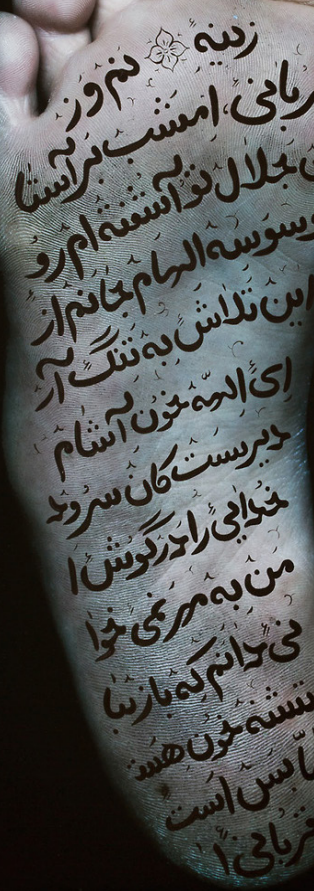 ربانی، امشب بر آستا
جلال تو آشفته ام رو
وسوسه الهام جانم از
این تلاش به تنگ آ
ای الهه خون آشام
دیریست کان سرود
خدایی را در گوش ا
من به مهر نمی خوا
نی دانم که باز
تشنه خون هست
بس است
قربانی ا